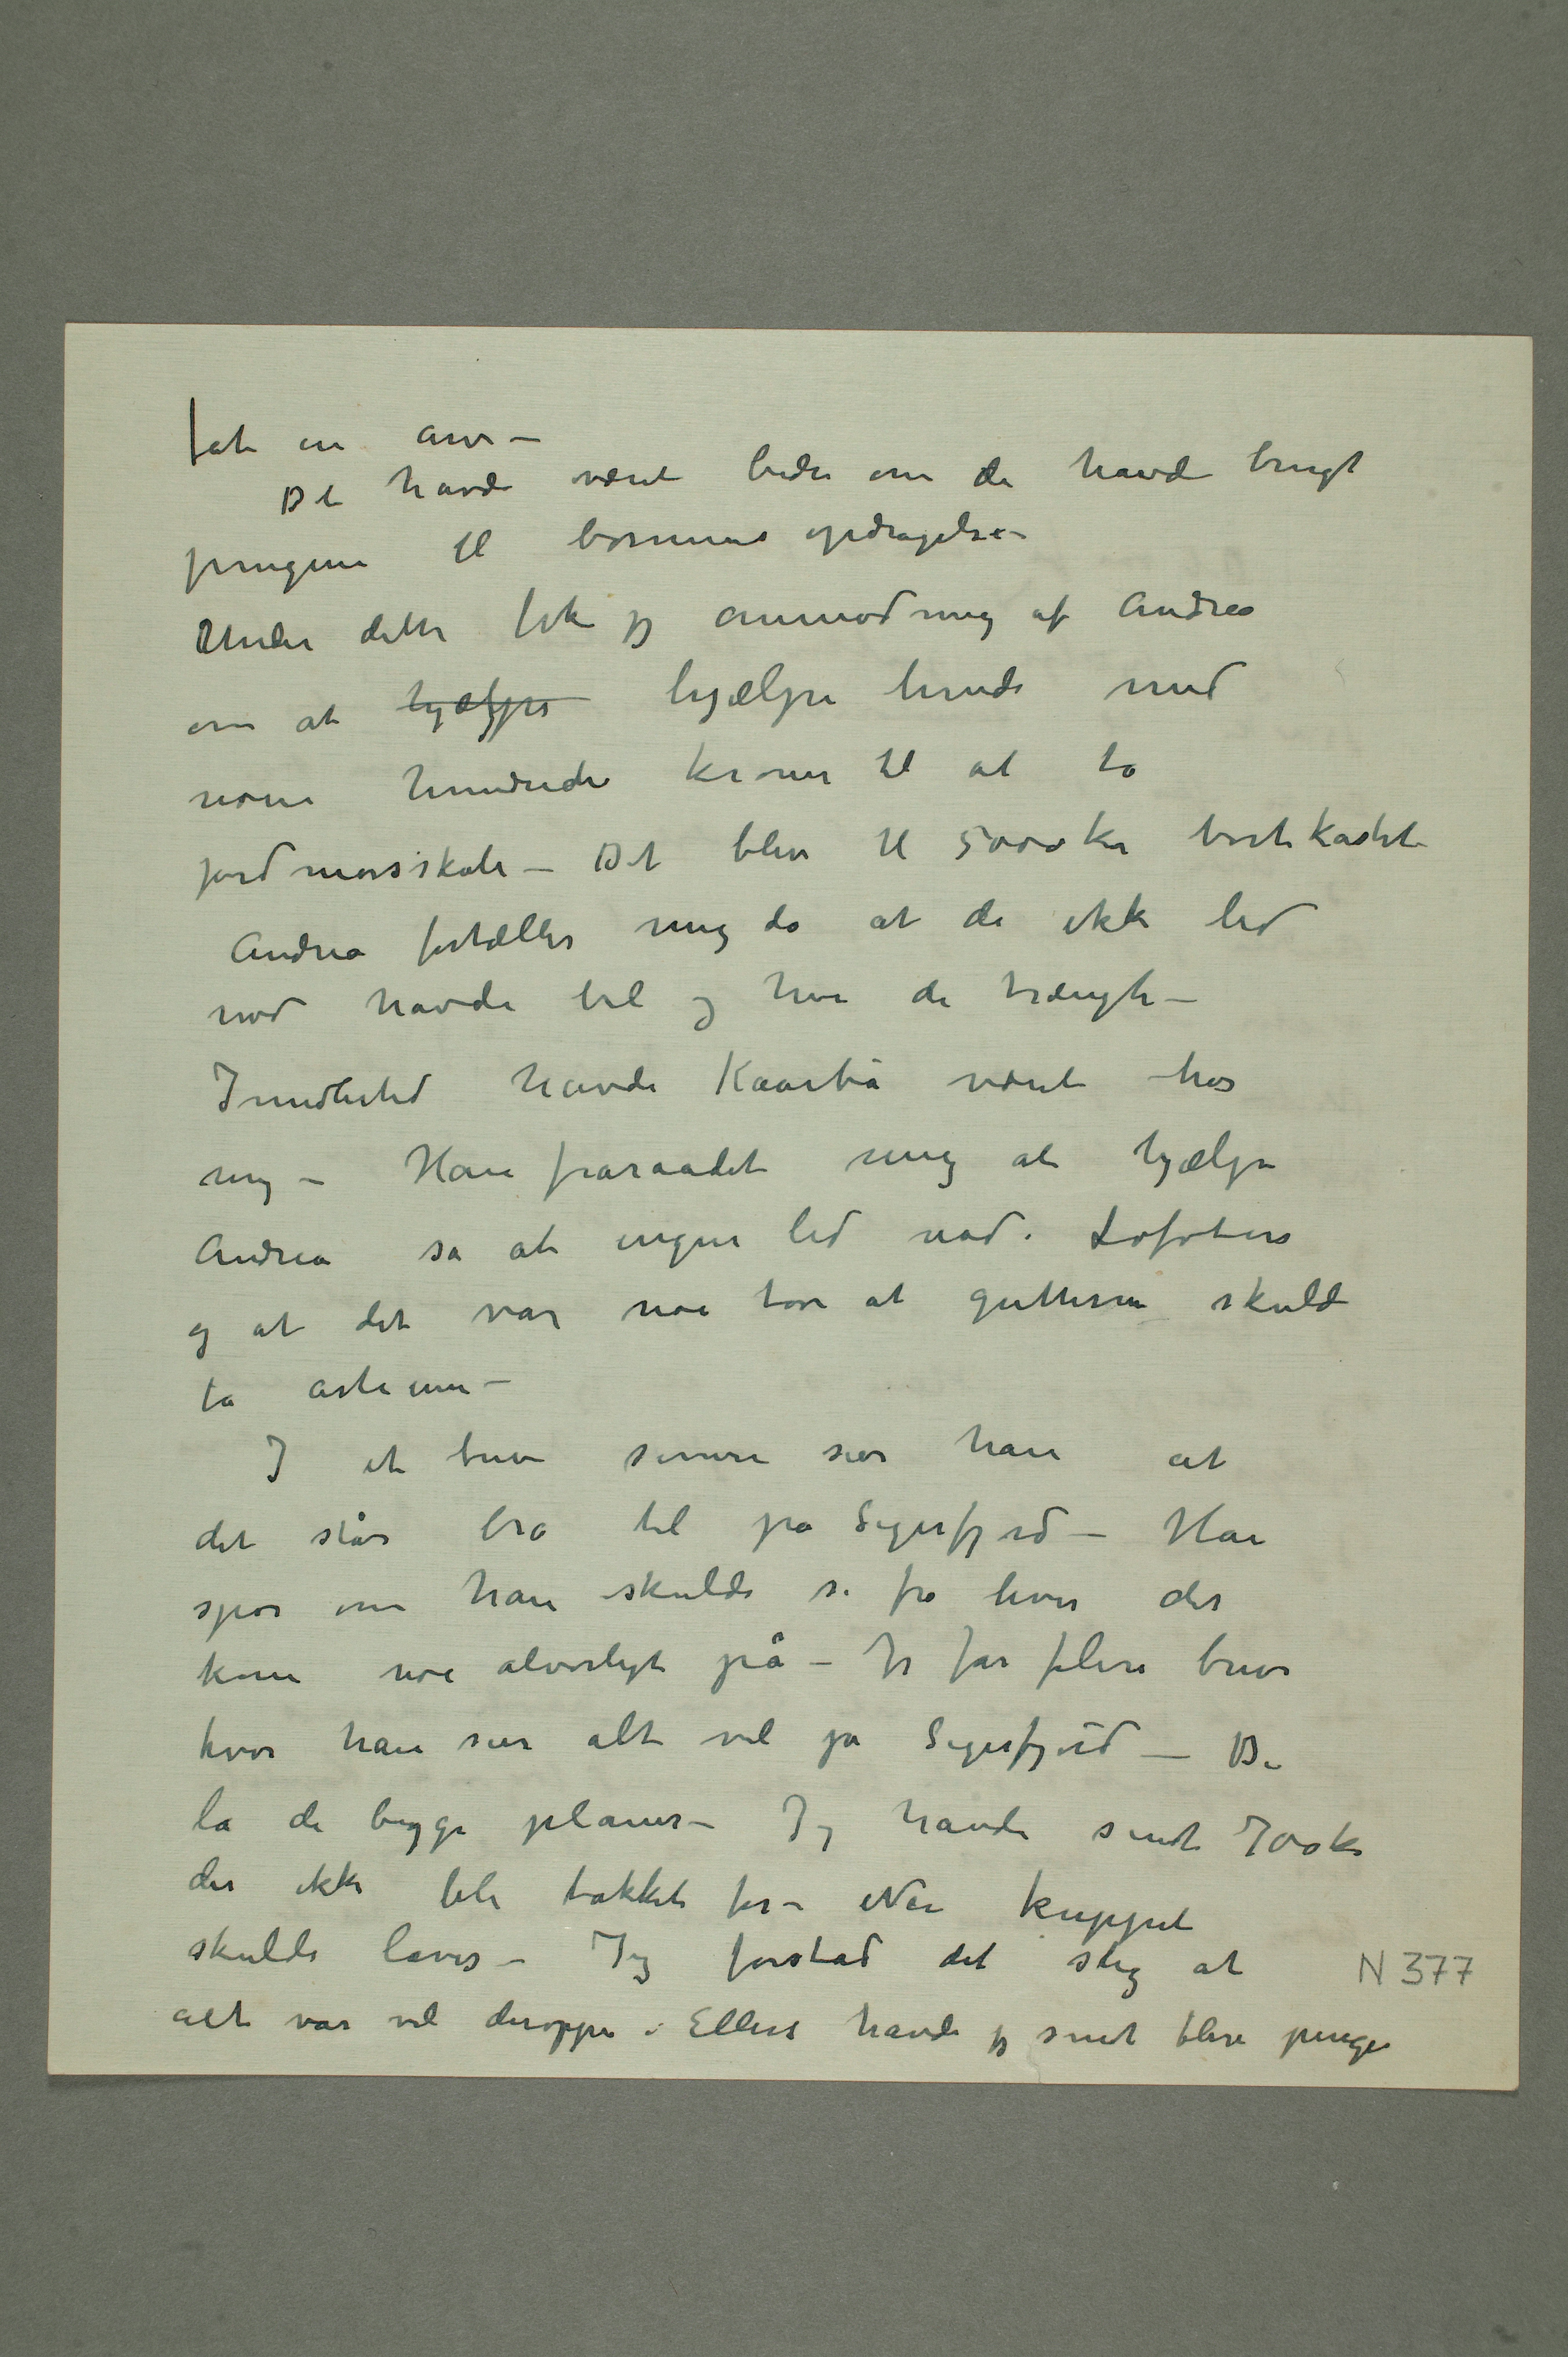 fåt en arv –
Det havde været bedre om de havde brugt
pengene til børnenes opdragelse –
Under dette fik jeg anmodning af Andrea
om at hjælpe hjælpe hende med
nogle hundrede kroner til at ta
jordmorsskole – Det blev til 5000 kr bortkastet
Andrea fortæller mig da at de ikke led
nød havde bil og hva de trængte –
Imidlertid havde Kaarbø været hos
mig – Han fraraadet mig at hjælpe
Andrea sa at ingen led nød i Lofoten
og at det var noe tøv at gutterne skulde
ta artium –
I et brev senere sier han at
det står bra til på Sigerfjord – Han
spør om han skulde si fra hvis det
kom noe alvorligt på – Jeg får flere brev
hvor han sier alt vel på Sigerfjord – Da
la de bygge planer – Jeg havde sendt 700 kr
der ikke ble takket for – Når kuppet
skulde laves – Jeg forstod det slig at
alt var vel deroppe. Ellers havde jeg sendt flere penge
N 377